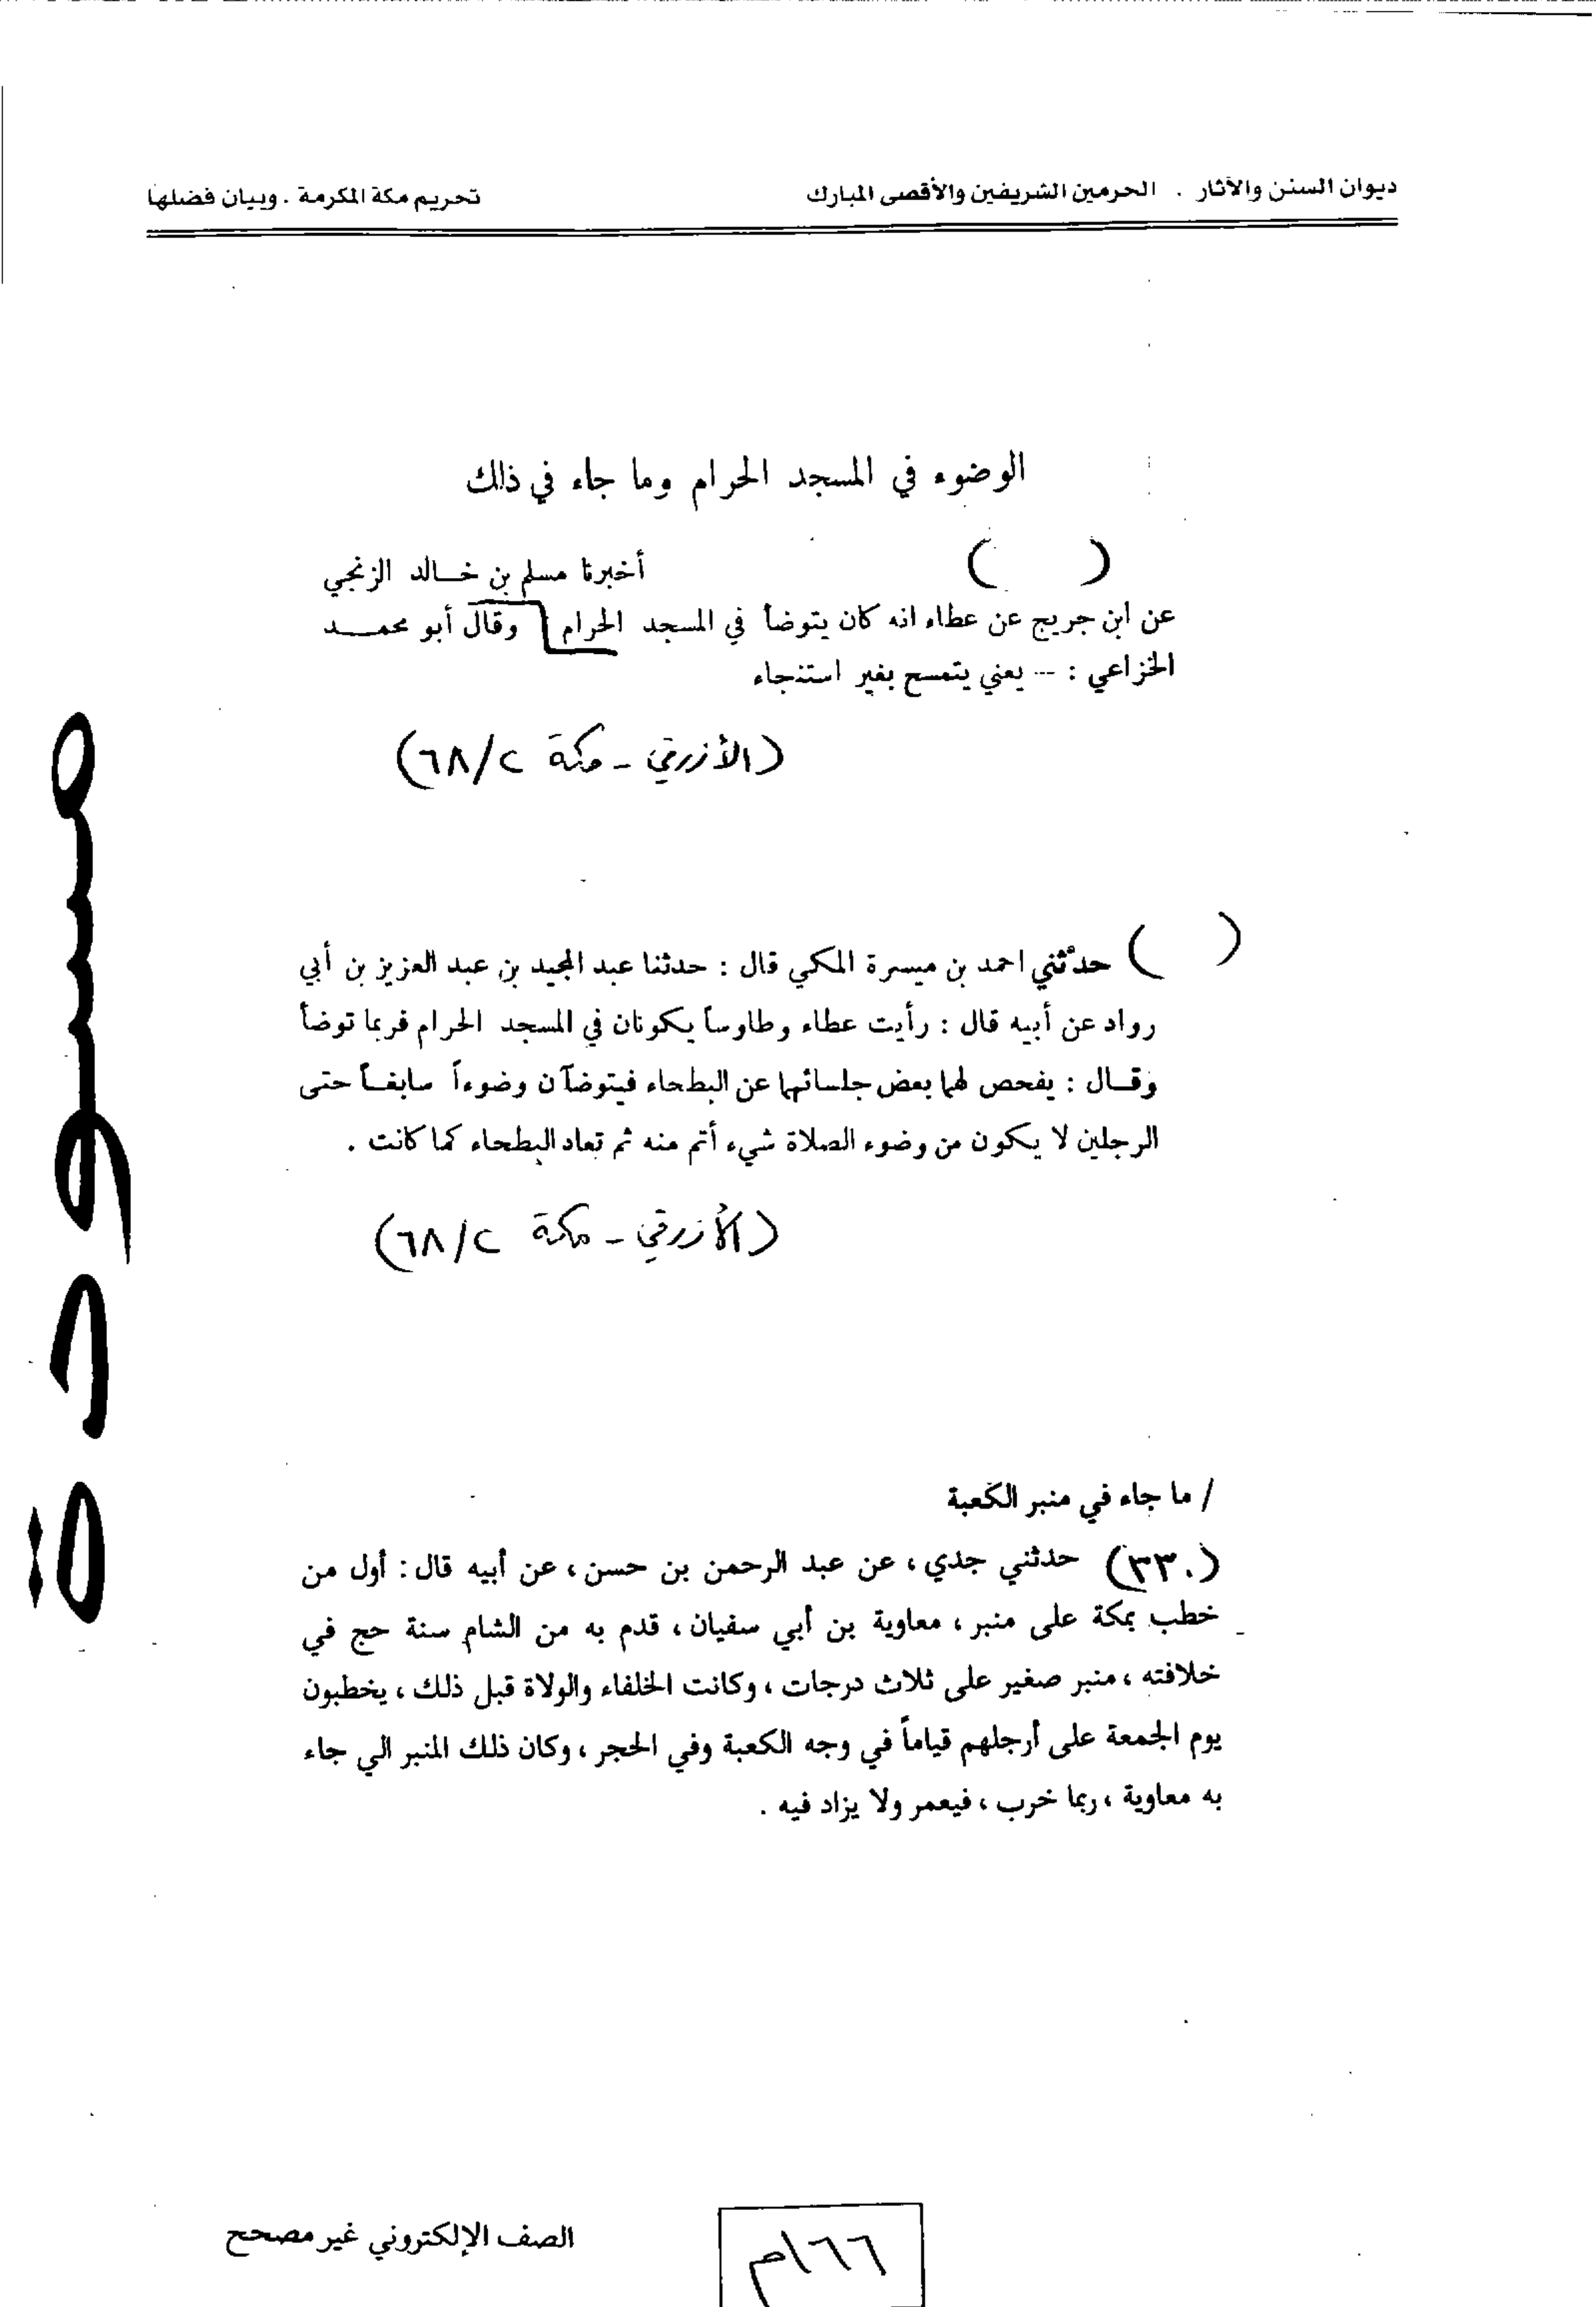 ديوان السنن والآثار . الحرمين الشريفين والأقصى المبارك
تحريم مكة المكرمة . وبيان فضلها
الوضوء في المسجد الحرام وما جاء في ذلك
( ) أخبرنا مسلم بن خـالد الزنجي
عن ابن جريج عن عطاء انه كان يتوضأ في المسجد الحرام وقال أبو محمـــد
الخزاعي : --- يعني يتمسح بغير استنجاء
(الأزرقي - مكة ٢/٦٨)
( ) حدّثني احمد بن ميسرة المكي قال : حدثنا عبد المجيد بن عبد العزيز بن أبي
رواد عن أبيه قال : رأيت عطاء وطاوساً يكونان في المسجد الحرام فربما توضأ
وقـال : يفحص لهما بعض جلسائهما عن البطحاء فيتوضآن وضوءاً سابغـاً حتى
الرجلين لا يكون من وضوء الصلاة شيء أتم منه ثم تعاد البطحاء كما كانت .
(الأزرقي - مكة ٢/٦٨)
/ ما جاء في منبر الكعبة
(٣٣٠) حدثني جدي ، عن عبد الرحمن بن حسن ، عن أبيه قال : أول من
خطب بمكة على منبر ، معاوية بن أبي سفيان ، قدم به من الشام سنة حج في
خلافته ، منبر صغير على ثلاث درجات ، وكانت الخلفاء والولاة قبل ذلك ، يخطبون
يوم الجمعة على أرجلهم قياماً في وجه الكعبة وفي الحجر ، وكان ذلك المنبر الي جاء
به معاوية ، ربما خرب ، فيعمر ولا يزاد فيه .
مسودة
الصف الإلكتروني غير مصحح
١٦٦م